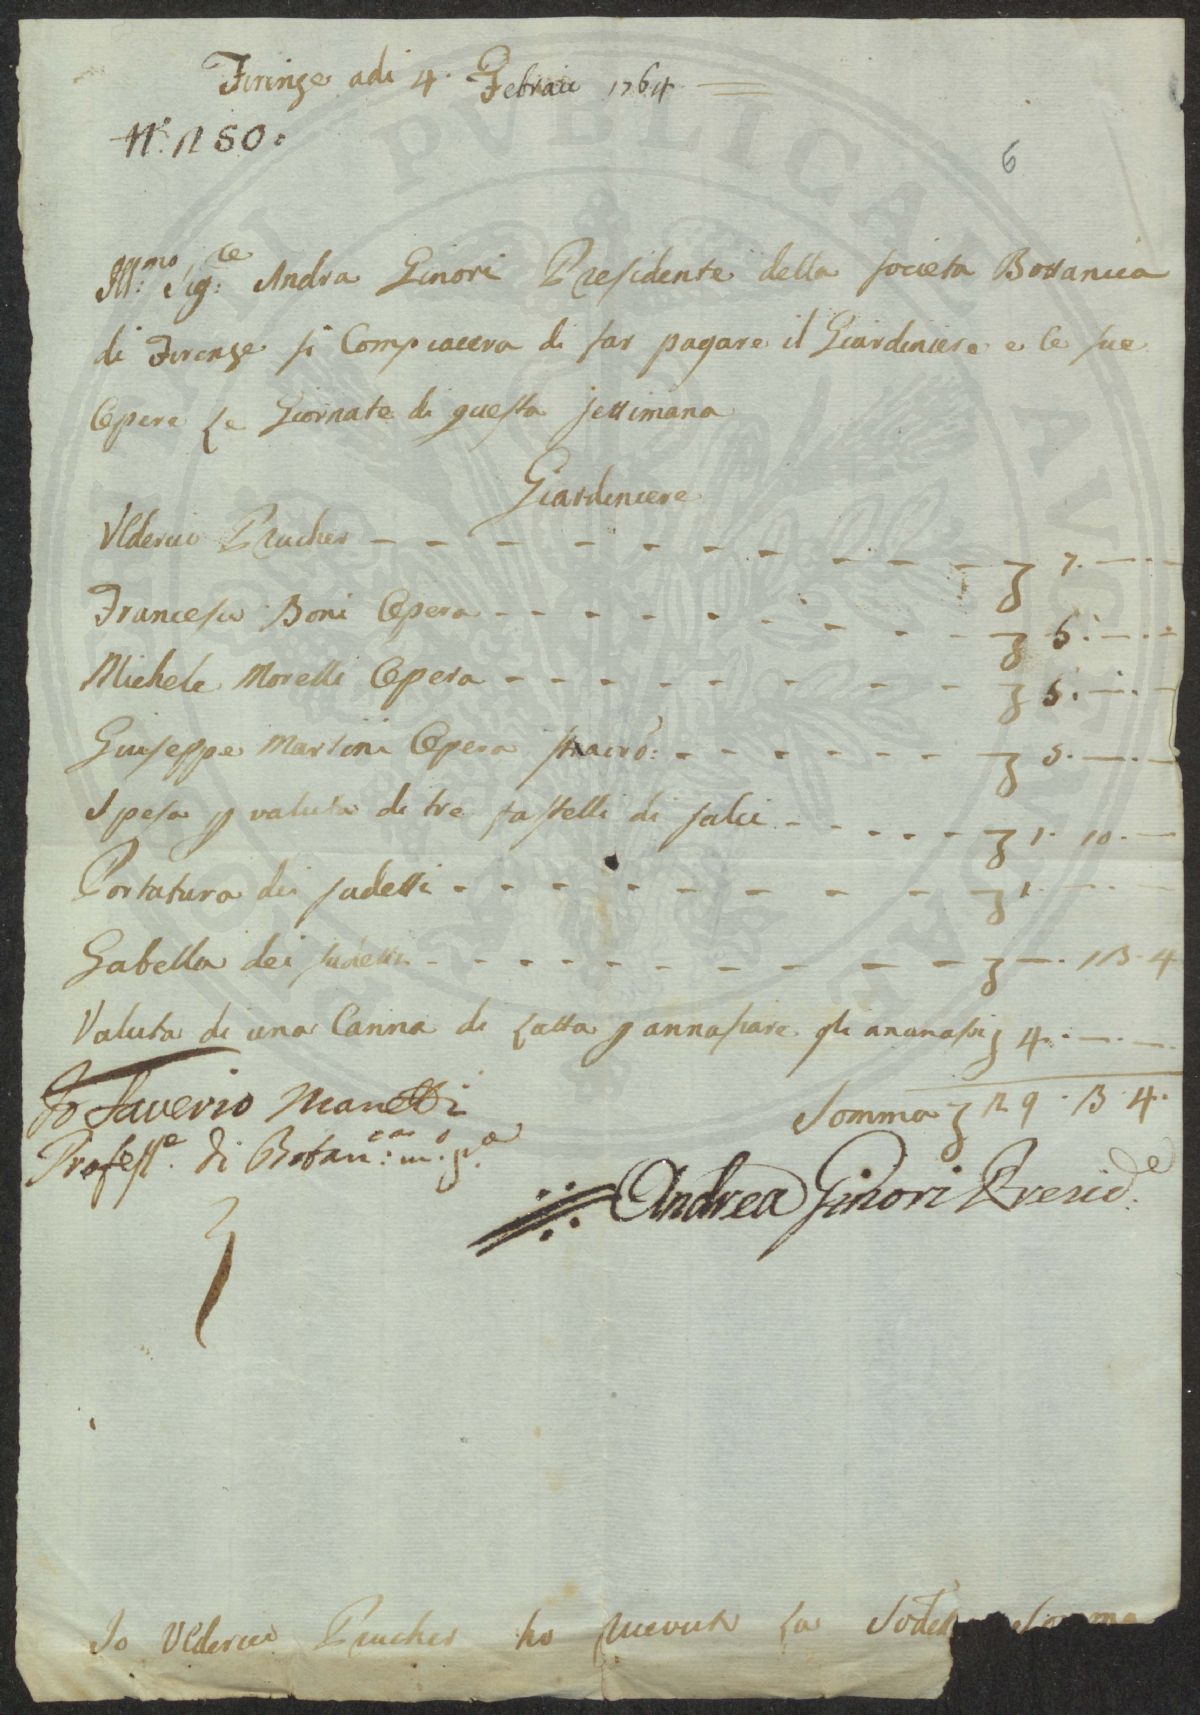 Firenze adi 4. Febraio 1764
N.° 250.
6
Ill:mo Sig:re Andra Ginori Presidente della societa Bottanica
di Firenze si Compiacera di far pagare il Giardiniere e le sue
Opere le Giornate di questa settimana
Giardiniere
Ulderico Prucher 7. — . —
Francesco Boni Opera — 5. — . —
Michele Morelli Opera — 5. — . —
Giuseppe Martini Opera 5. — . —
Spesa p valuta di tre fastelli di salci 1. 10. —
Portatura dei sudetti 1. — . —
Gabella dei sudetti — . 13. 4
Valuta di una Canna di Latta p annafiare gli ananassi 4. — . —
Somma 29. 3. 4.
Io Saverio Manetti
Profess.e di Botan:ca m.o p.a
Andrea Ginori Presid.e
Io Ulderico Prucher ho ricevuto la Somma